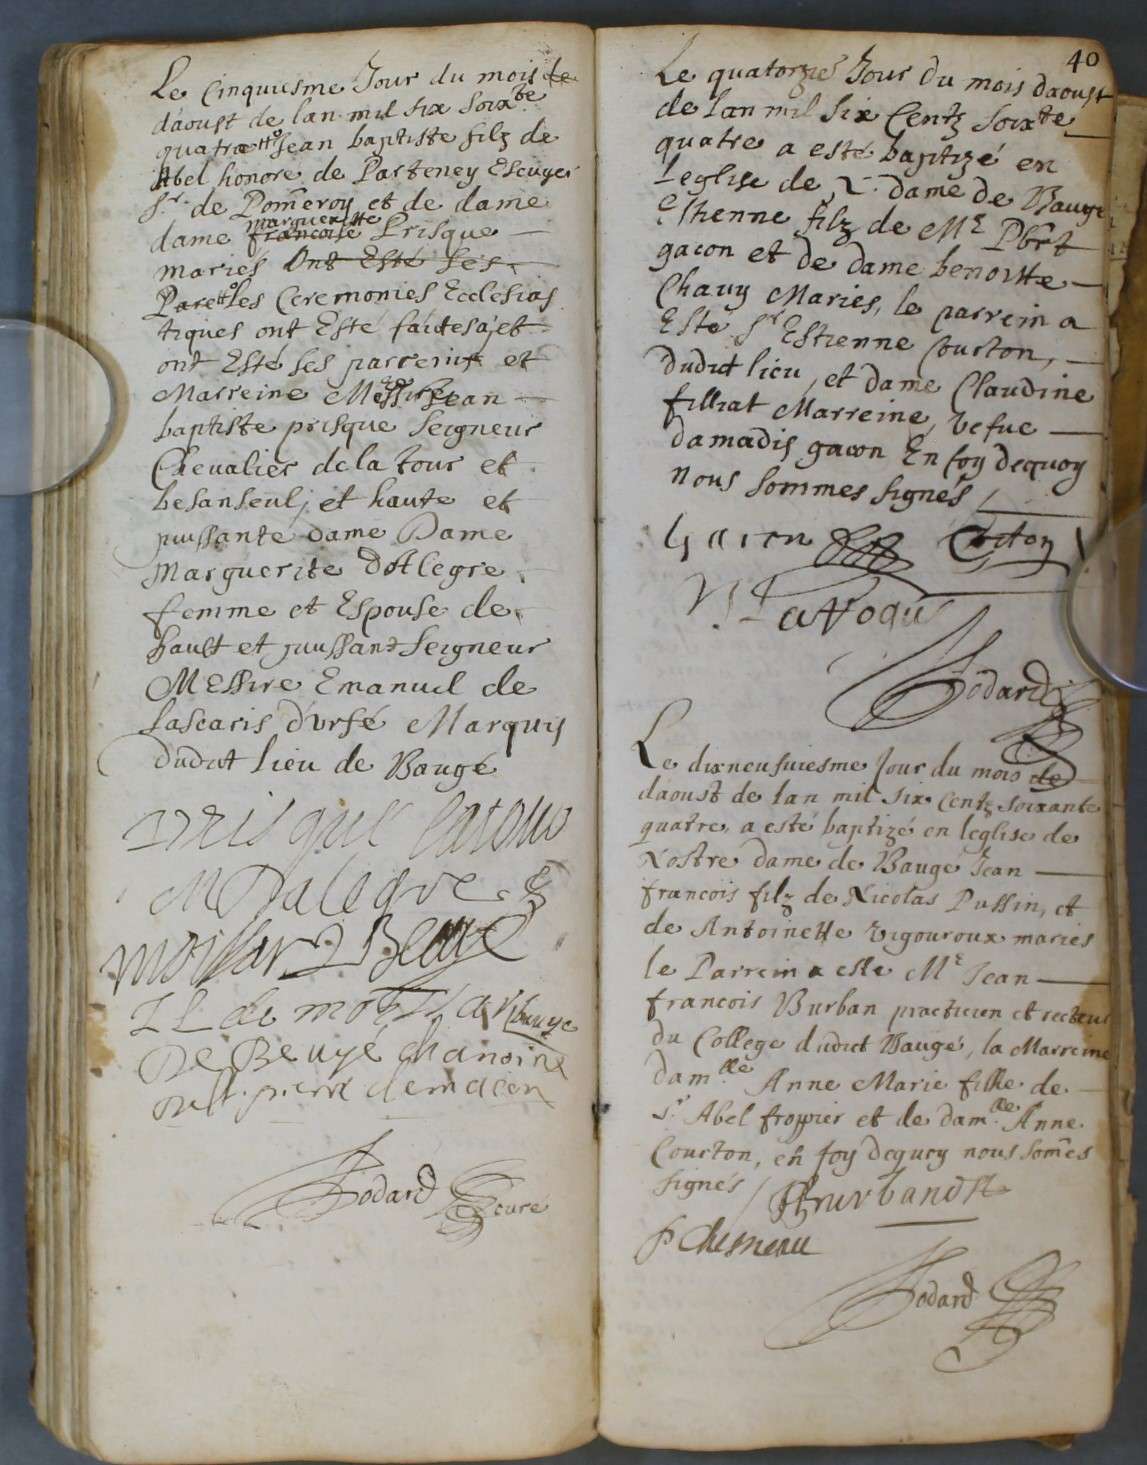 Le Cinquiesme Jour du mois de
d'aoust de lan mil six soixte
quatre Jean baptiste filz de
Abel honore de Parteney Escuyer
Sr. de Pomeroy et de dame
margueritte
dame francoise Prisque
mariés Ont Esté ses
Par les Ceremonies Ecclesias
tiques ont Esté faictes a et
ont Esté ses parreins et
Marreine Messire Jean
baptiste prisque Seigneur
Chevalier de la tour et
besanseul, et haute et
puissante dame Dame
Marguerite d'Alegre
femme et Espouse de
hault et puissant Seigneur
Messire Emanuel de
Lascaris d'Urfé Marquis
dudit lieu de Baugé
Prisque Latour
M Dalegre
De Beuyé chanoine
Jodard curé
40
Le quatorzie Jour du mois daoust
de lan mil six Centz soixte
quatre a esté baptizé en
leglise de N. dame de Bauge
Estienne filz de Me Pbert
gacon et de dame benoitte
Chavy Mariés, le parrein a
Esté Sr Estienne Courton,
dudit lieu, et dame Claudine
filliat Marreine, vefue
damadis gacon En foy dequoy
nous sommes signés
Gacon Corton
Jodard
Le dixneufuiesme Jour du mois de
daoust de lan mil six Centz soixante
quatre, a esté baptizé en leglise de
Nostre dame de Bauge Jean
francois filz de Nicolas Pussin, et
de Antoinette Vigouroux mariés
le Parrein a esté Me Jean
francois Burban practicien et recteur
du College dudict Baugé, la Marreine
damlle Anne Marie fille de
Sr Abel froppier et de damlle Anne
Courton, en foy dequoy nous somes
signés
P Chesneau
Jodard